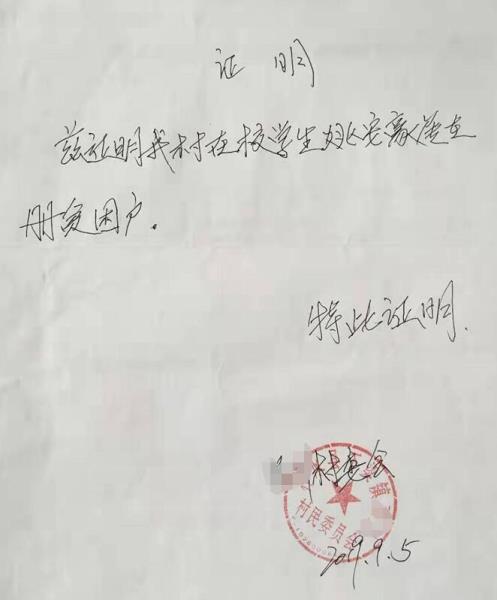 证 明
兹证明我村在校学生姚豪是在
册贫困户.
特此证明.
村委会
镇
村民委员会
2019.9.5